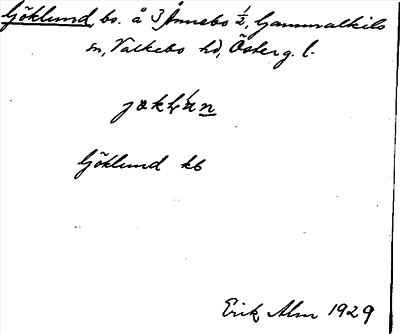 Göklund, bs. å 3 Ånnebo 1/2, Gammalkils
sn, Valkebo hd, Österg. l.
Göklund kb
Erik Alm 1929